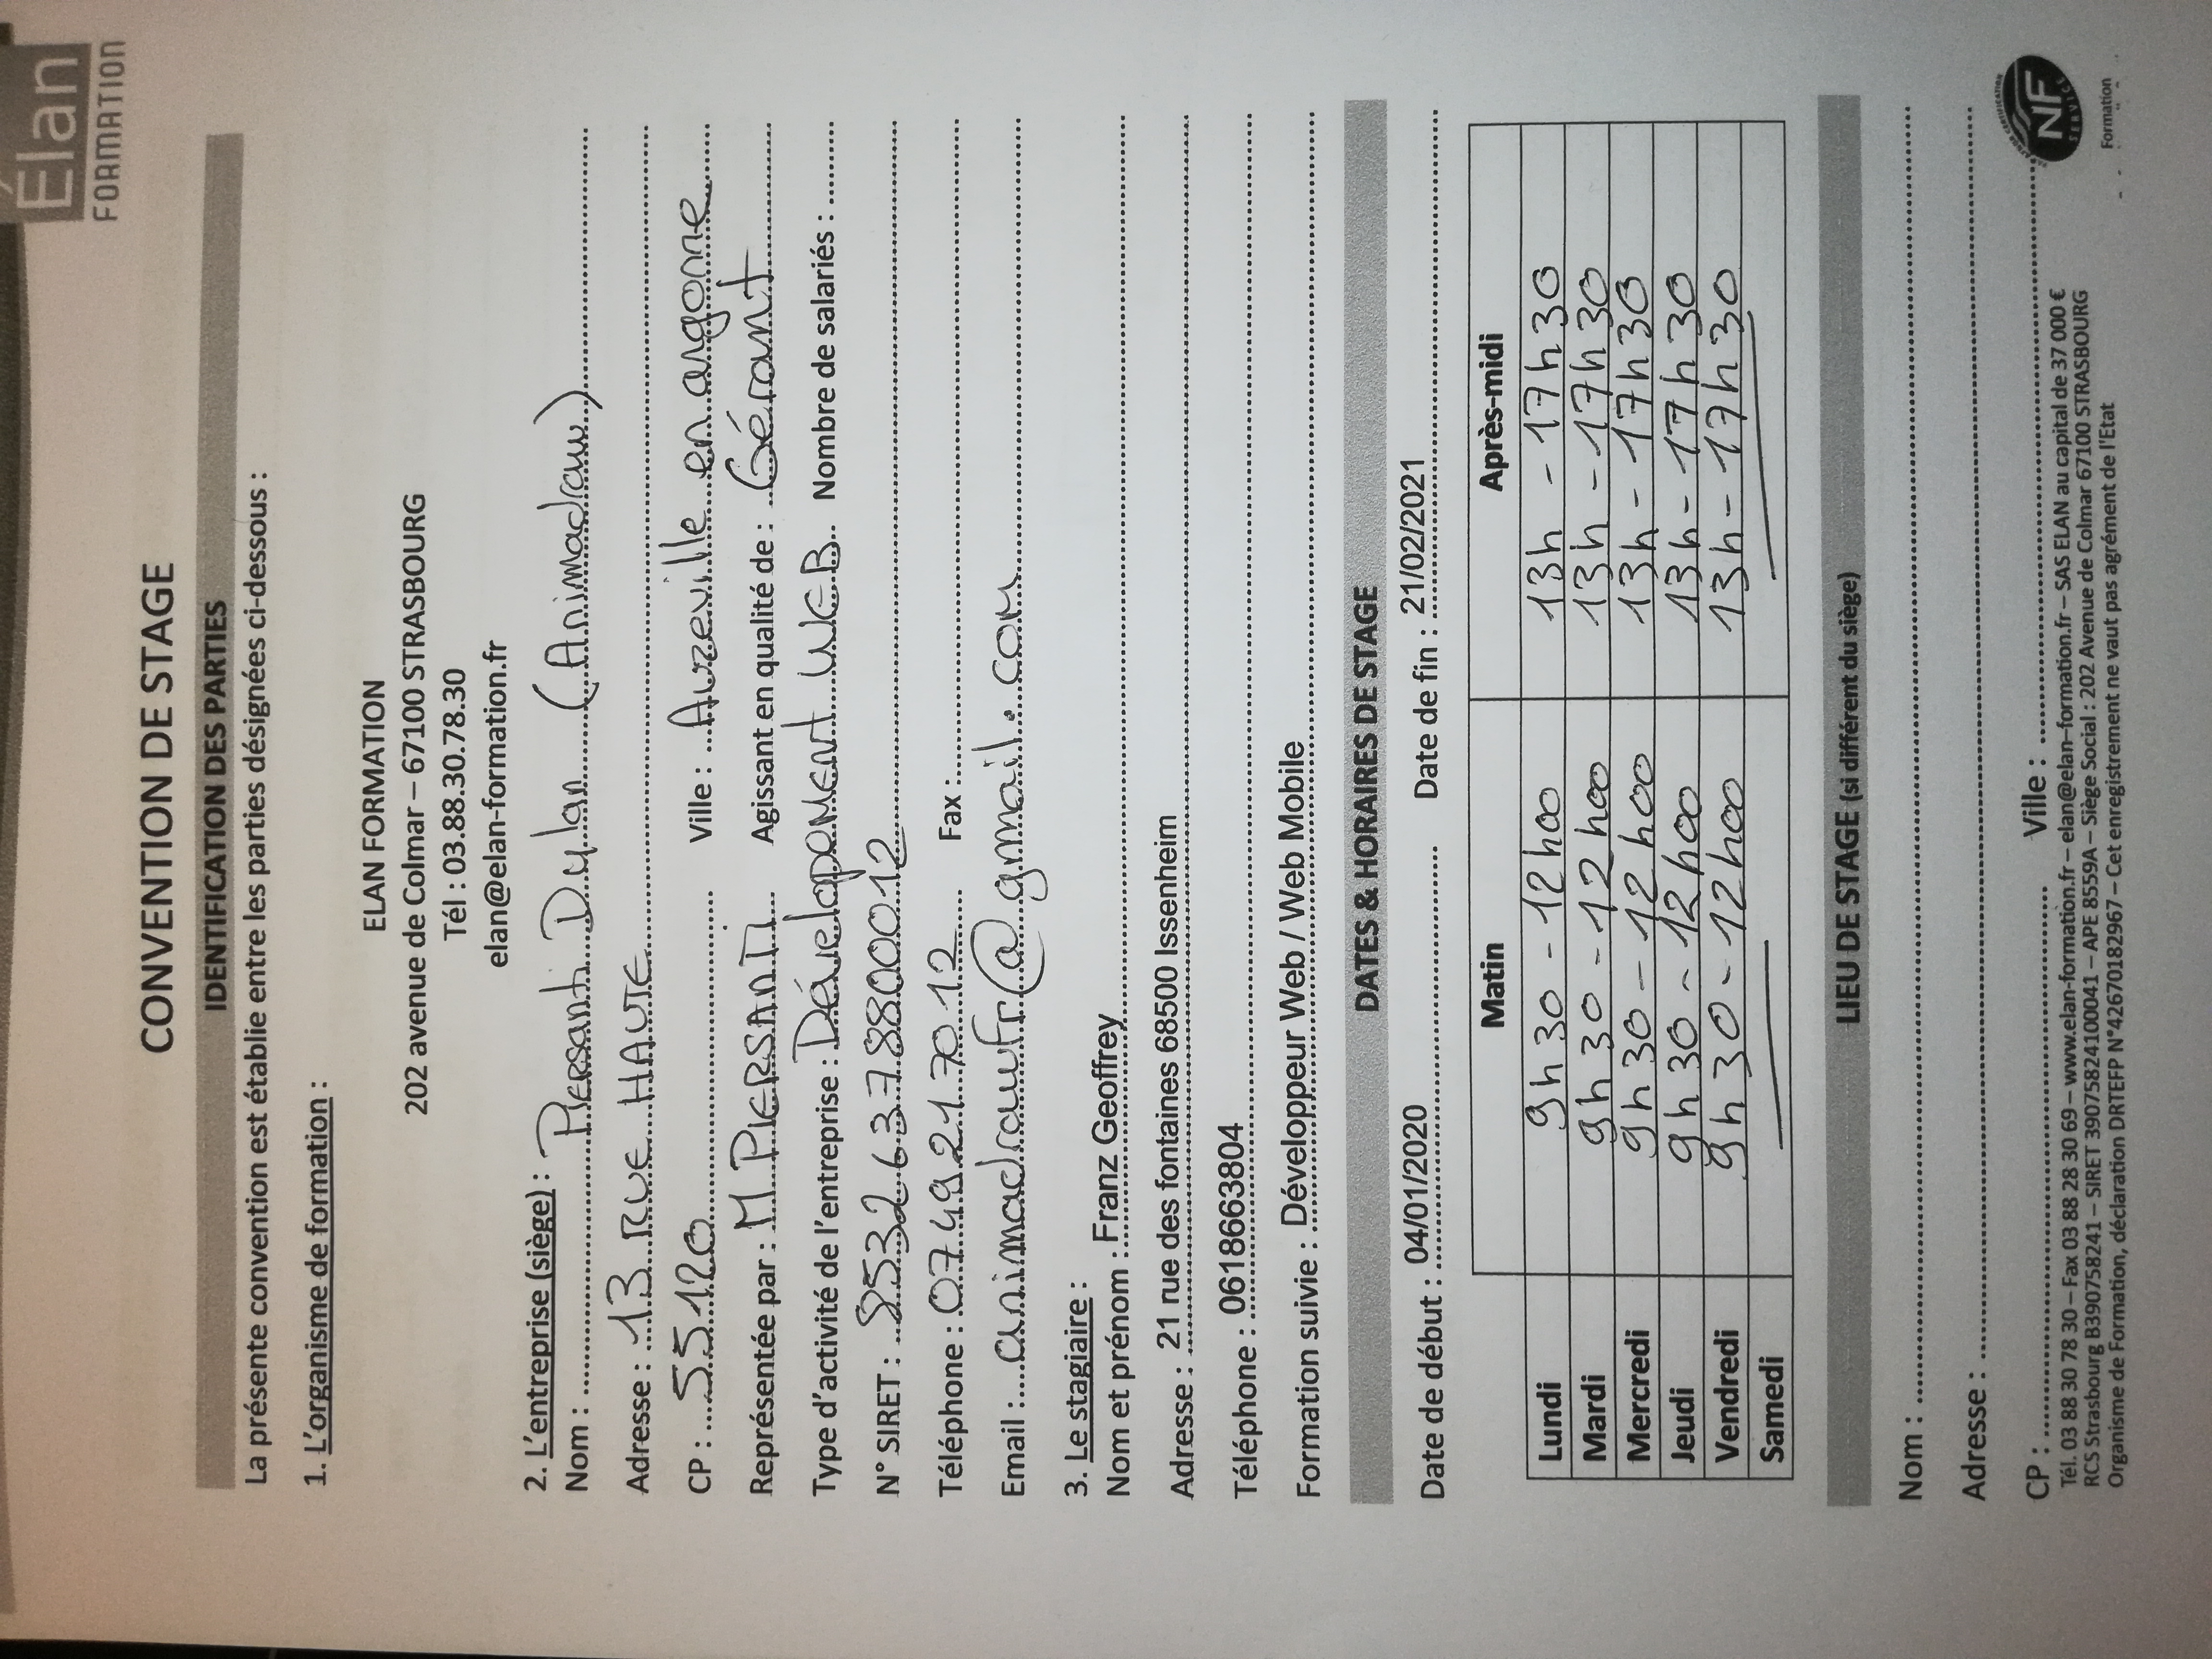 Élan
FORMATION
CONVENTION DE STAGE
IDENTIFICATION DES PARTIES
La présente convention est établie entre les parties désignées ci-dessous :
1. L'organisme de formation :
ELAN FORMATION
202 avenue de Colmar – 67100 STRASBOURG
Tél : 03.88.30.78.30
elan@elan-formation.fr
2. L'entreprise (siège) :
Nom : Piersanti Dylan (Animadraw)
Adresse : 13 RUE HAUTE
CP : 55120 Ville : Auzeville en argonne
Représentée par : M PIERSANTI Agissant en qualité de : Gérant
Type d'activité de l'entreprise : Dévelopement WEB Nombre de salariés :
N° SIRET : 85326378800012
Téléphone : 0749217012 Fax :
Email : animadrawfr@gmail.com
3. Le stagiaire :
Nom et prénom : Franz Geoffrey
Adresse : 21 rue des fontaines 68500 Issenheim
Téléphone : 0618663804
Formation suivie : Développeur Web / Web Mobile
DATES & HORAIRES DE STAGE
Date de début : 04/01/2020 Date de fin : 21/02/2021
Matin Après-midi
Lundi 9h30 - 12h00 13h - 17h30
Mardi 9h30 - 12h00 13h - 17h30
Mercredi 9h30 - 12h00 13h - 17h30
Jeudi 9h30 - 12h00 13h - 17h30
Vendredi 9h30 - 12h00 13h - 17h30
Samedi
LIEU DE STAGE (si différent du siège)
Nom :
Adresse :
CP : Ville :
Tél. 03 88 30 78 30 – Fax 03 88 28 30 69 – www.elan-formation.fr – elan@elan–formation.fr – SAS ELAN au capital de 37 000 €
RCS Strasbourg B390758241 – SIRET 39075824100041 – APE 8559A – Siège Social : 202 Avenue de Colmar 67100 STRASBOURG
Organisme de Formation, déclaration DRTEFP N°42670182967 – Cet enregistrement ne vaut pas agrément de l'Etat
CERTIFICATION
NF
SERVICE
Formation